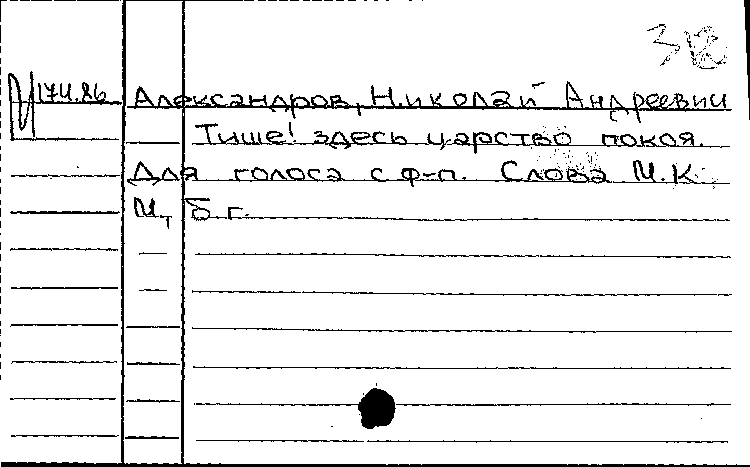 312
М 174.86 Александров, Николай Андреевич
Тише! здесь царство покоя.
Для голоса с ф-п. Слова М.К.
М, б.г.